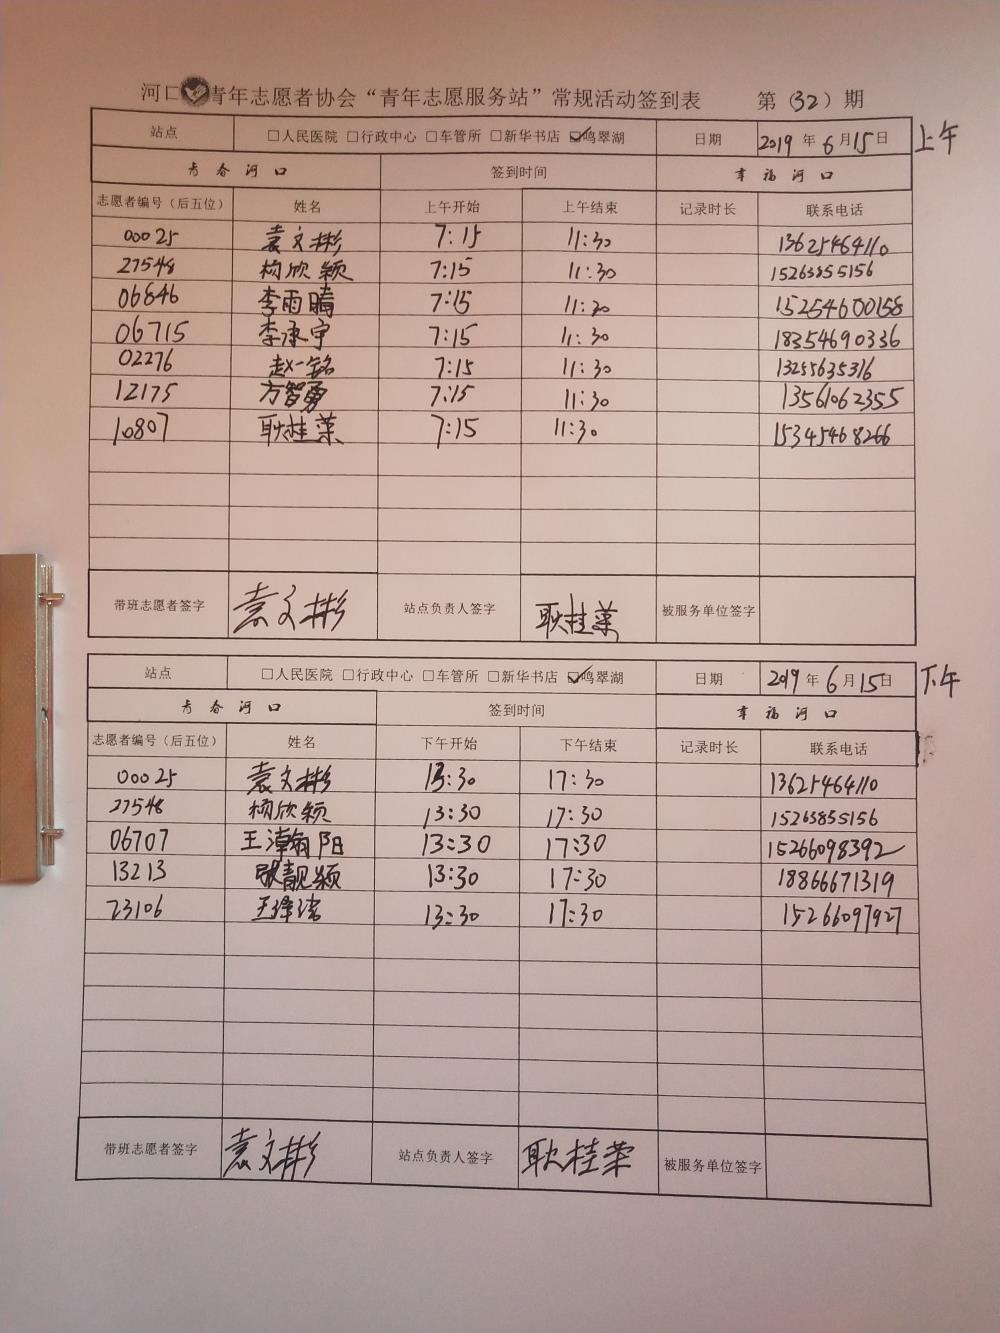 河口青年志愿者协会“青年志愿服务站”常规活动签到表 第（32）期
站点 □人民医院 □行政中心 □车管所 □新华书店 ☑鸣翠湖 日期 2019年6月15日 上午
青春河口 签到时间 幸福河口
志愿者编号（后五位） 姓名 上午开始 上午结束 记录时长 联系电话
00025 袁文彬 7:15 11:30 13625464110
27548 杨欣颖 7:15 11:30 15263855156
06846 李雨晴 7:15 11:30 15254600158
06715 李承宇 7:15 11:30 18354690336
02276 赵一铭 7:15 11:30 13255635316
12175 方智勇 7:15 11:30 13561062355
10807 耿桂荣 7:15 11:30 15345468266
带班志愿者签字 袁文彬 站点负责人签字 耿桂荣 被服务单位签字
站点 □人民医院 □行政中心 □车管所 □新华书店 ☑鸣翠湖 日期 2019年6月15日 下午
青春河口 签到时间 幸福河口
志愿者编号（后五位） 姓名 下午开始 下午结束 记录时长 联系电话
00025 袁文彬 13:30 17:30 13625464110
27548 杨欣颖 13:30 17:30 15263855156
06707 王瀚阳 13:30 17:30 15266098392
13213 张靓颖 13:30 17:30 18866671319
23106 13:30 17:30 15266097927
带班志愿者签字 袁文彬 站点负责人签字 耿桂荣 被服务单位签字